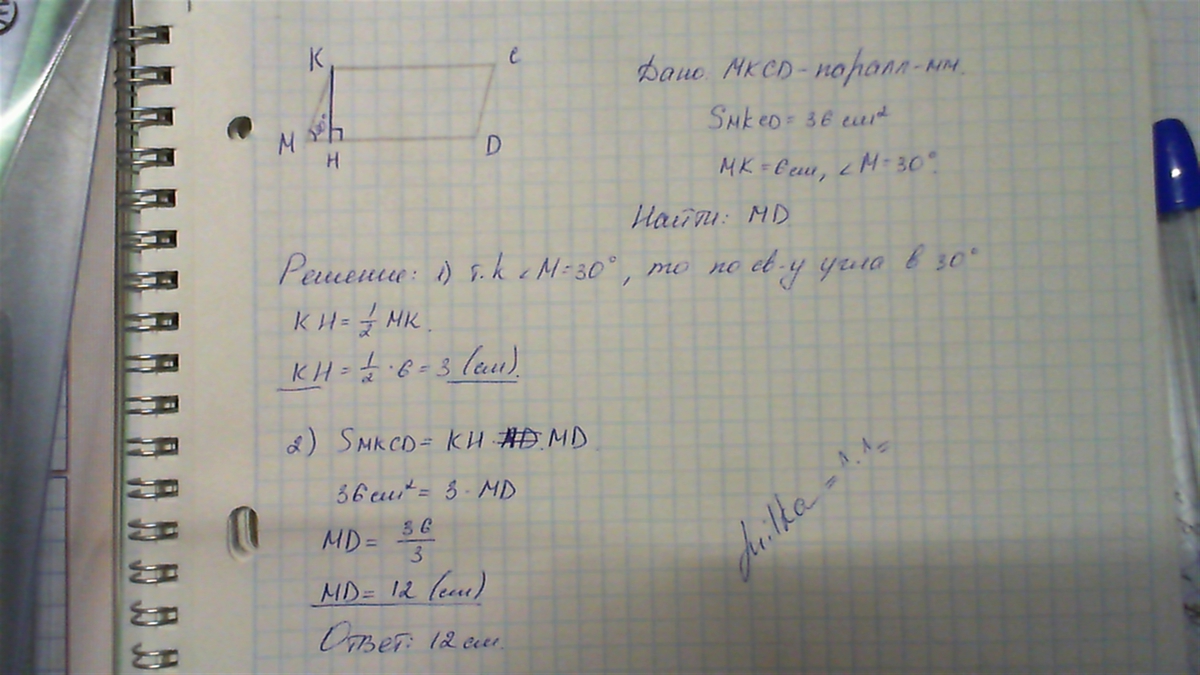 K C
30°
M H D
Дано: MKCD - паралл-мм.
SMKCD = 36 см²
MK = 6 см, ∠M = 30°.
Найти: MD.
Решение: 1) т.к ∠M = 30°, то по св-у угла в 30°
KH = 1/2 MK.
KH = 1/2 · 6 = 3 (см).
2) SMKCD = KH · MD
36 см² = 3 · MD
MD = 36/3
MD = 12 (см)
Ответ: 12 см.